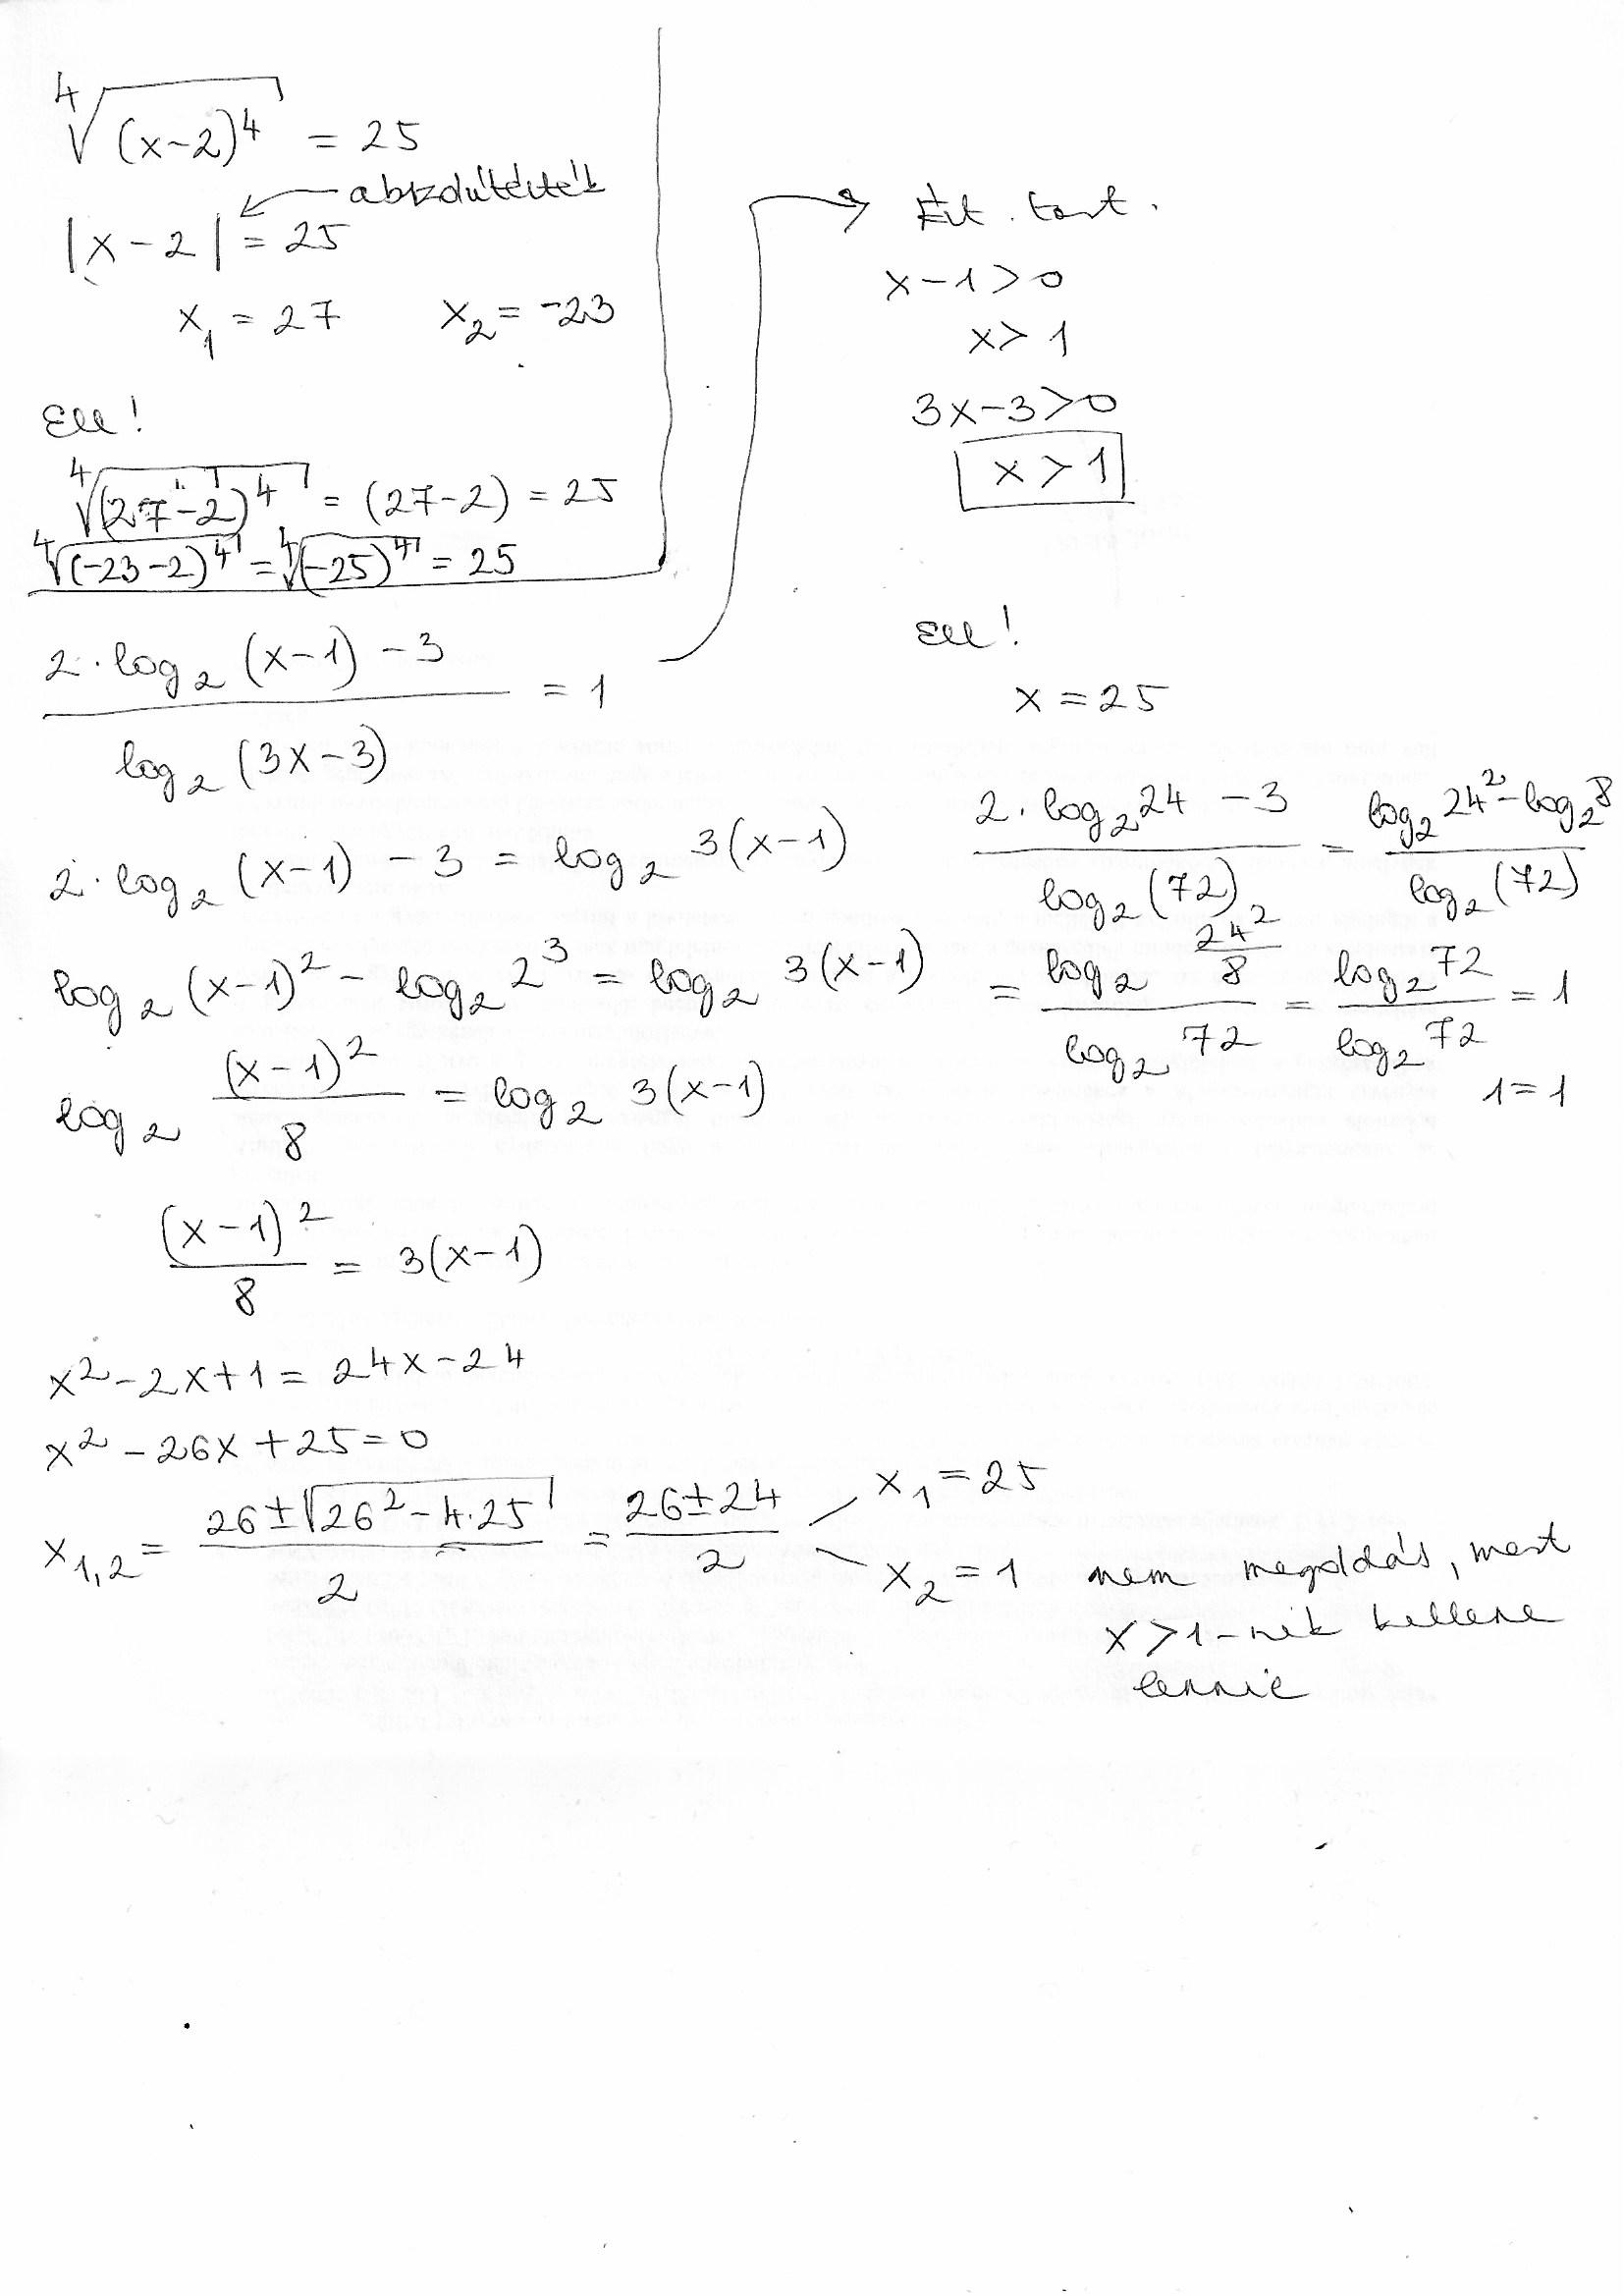 ⁴√(x-2)⁴ = 25
abszolútérték
|x-2| = 25
x₁ = 27 x₂ = -23
Ell!
⁴√(27-2)⁴ = (27-2) = 25
⁴√(-23-2)⁴ = ⁴√(-25)⁴ = 25
(2·log₂(x-1) - 3) / log₂(3x-3) = 1
2·log₂(x-1) - 3 = log₂ 3(x-1)
log₂(x-1)² - log₂2³ = log₂ 3(x-1)
log₂ (x-1)²/8 = log₂ 3(x-1)
(x-1)²/8 = 3(x-1)
x² - 2x + 1 = 24x - 24
x² - 26x + 25 = 0
x₁,₂ = (26 ± √(26² - 4·25))/2 = (26 ± 24)/2
x₁ = 25
x₂ = 1 nem megoldás, mert
x > 1-nek kellene
lennie
Ért. tart.
x-1 > 0
x > 1
3x-3 > 0
x > 1
Ell!
x = 25
(2·log₂24 - 3)/log₂(72) = (log₂24² - log₂8)/log₂(72)
= (log₂ 24²/8)/log₂72 = log₂72/log₂72 = 1
1 = 1